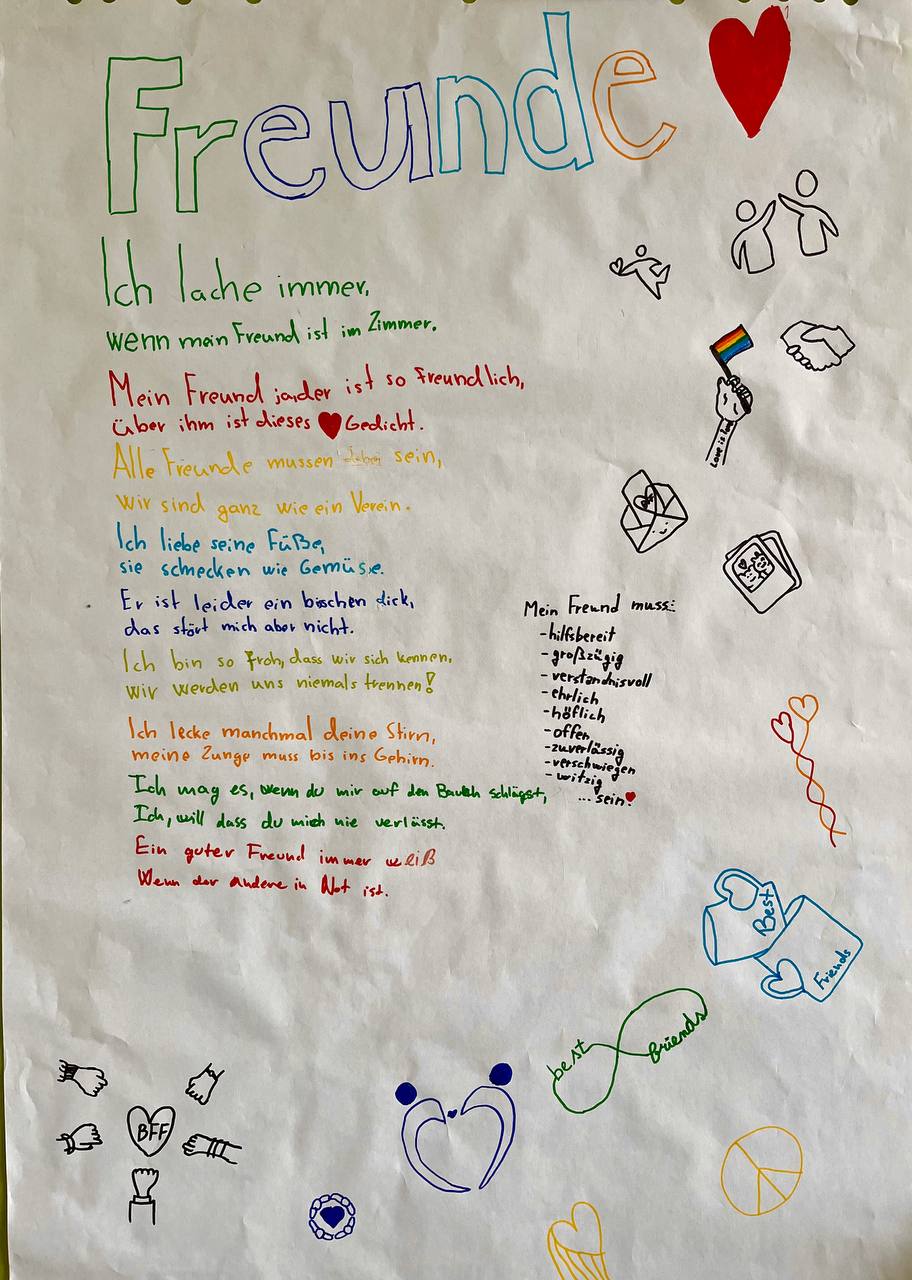 Freunde
Ich lache immer,
wenn mein Freund ist im Zimmer.
Mein Freund ist so freundlich,
über ihm ist dieses Gedicht.
Alle Freunde mussen dabei sein,
wir sind ganz wie ein Verein.
Ich liebe seine Füße,
sie schmecken wie Gemüse.
Er ist leider ein bisschen dick,
das stört mich aber nicht.
Ich bin so froh, dass wir sich kennen,
wir werden uns niemals trennen!
Ich lecke manchmal deine Stirn,
meine Zunge muss bis ins Gehirn.
Ich mag es, wenn du mir auf den Bauch schlägst,
Ich, will dass du mich nie verlässt.
Ein guter Freund immer weiß
Wenn der andere in Not ist.
Mein Freund muss:
-hilfsbereit
-großzügig
-verständnisvoll
-ehrlich
-höflich
-offen
-zuverlässig
-verschwiegen
-witzig
... sein!
Love is love
BFF
Best
Friends
best friends
BFF